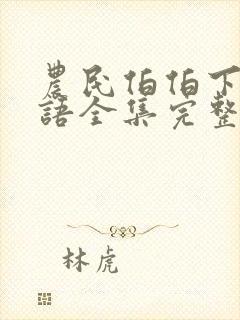 農民伯伯下
語全集完整
林虎